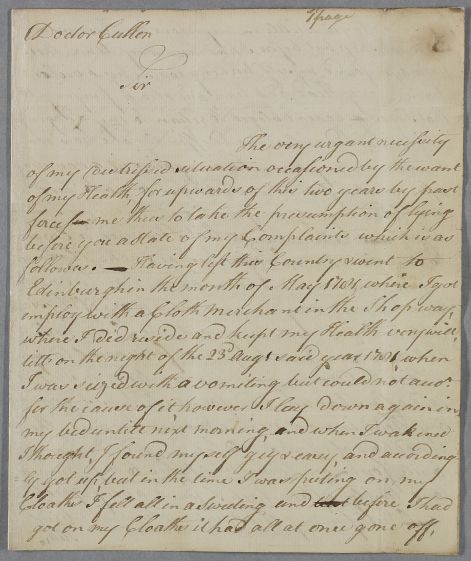 1 page
Doctor Cullen
Sir
The very urgant necissity
of my distrissed situation occasioned by the want
of my Health, for upwards of this two years by past
forces me thus to take the presumption of lying
before you a State of my Complaints which is as
follows. — Having left this Country & went to
Edinburgh in the month of May 1781, where I got
employ with a Cloth merchant in the Shop way,
where I did reside and kept my Health very will,
till on the night of the 23d Augt said year 1781 when
I was seized with a vomiting but could not
for the cause of it however I lay down again in
my bed untill next morning, and when I wakened
I thought I found my self & easey, and according
ly got up but in the time I was puting on my
Cloaths I fell all in a Sweting and before I had
got on my Cloaths it had all at once gone off,